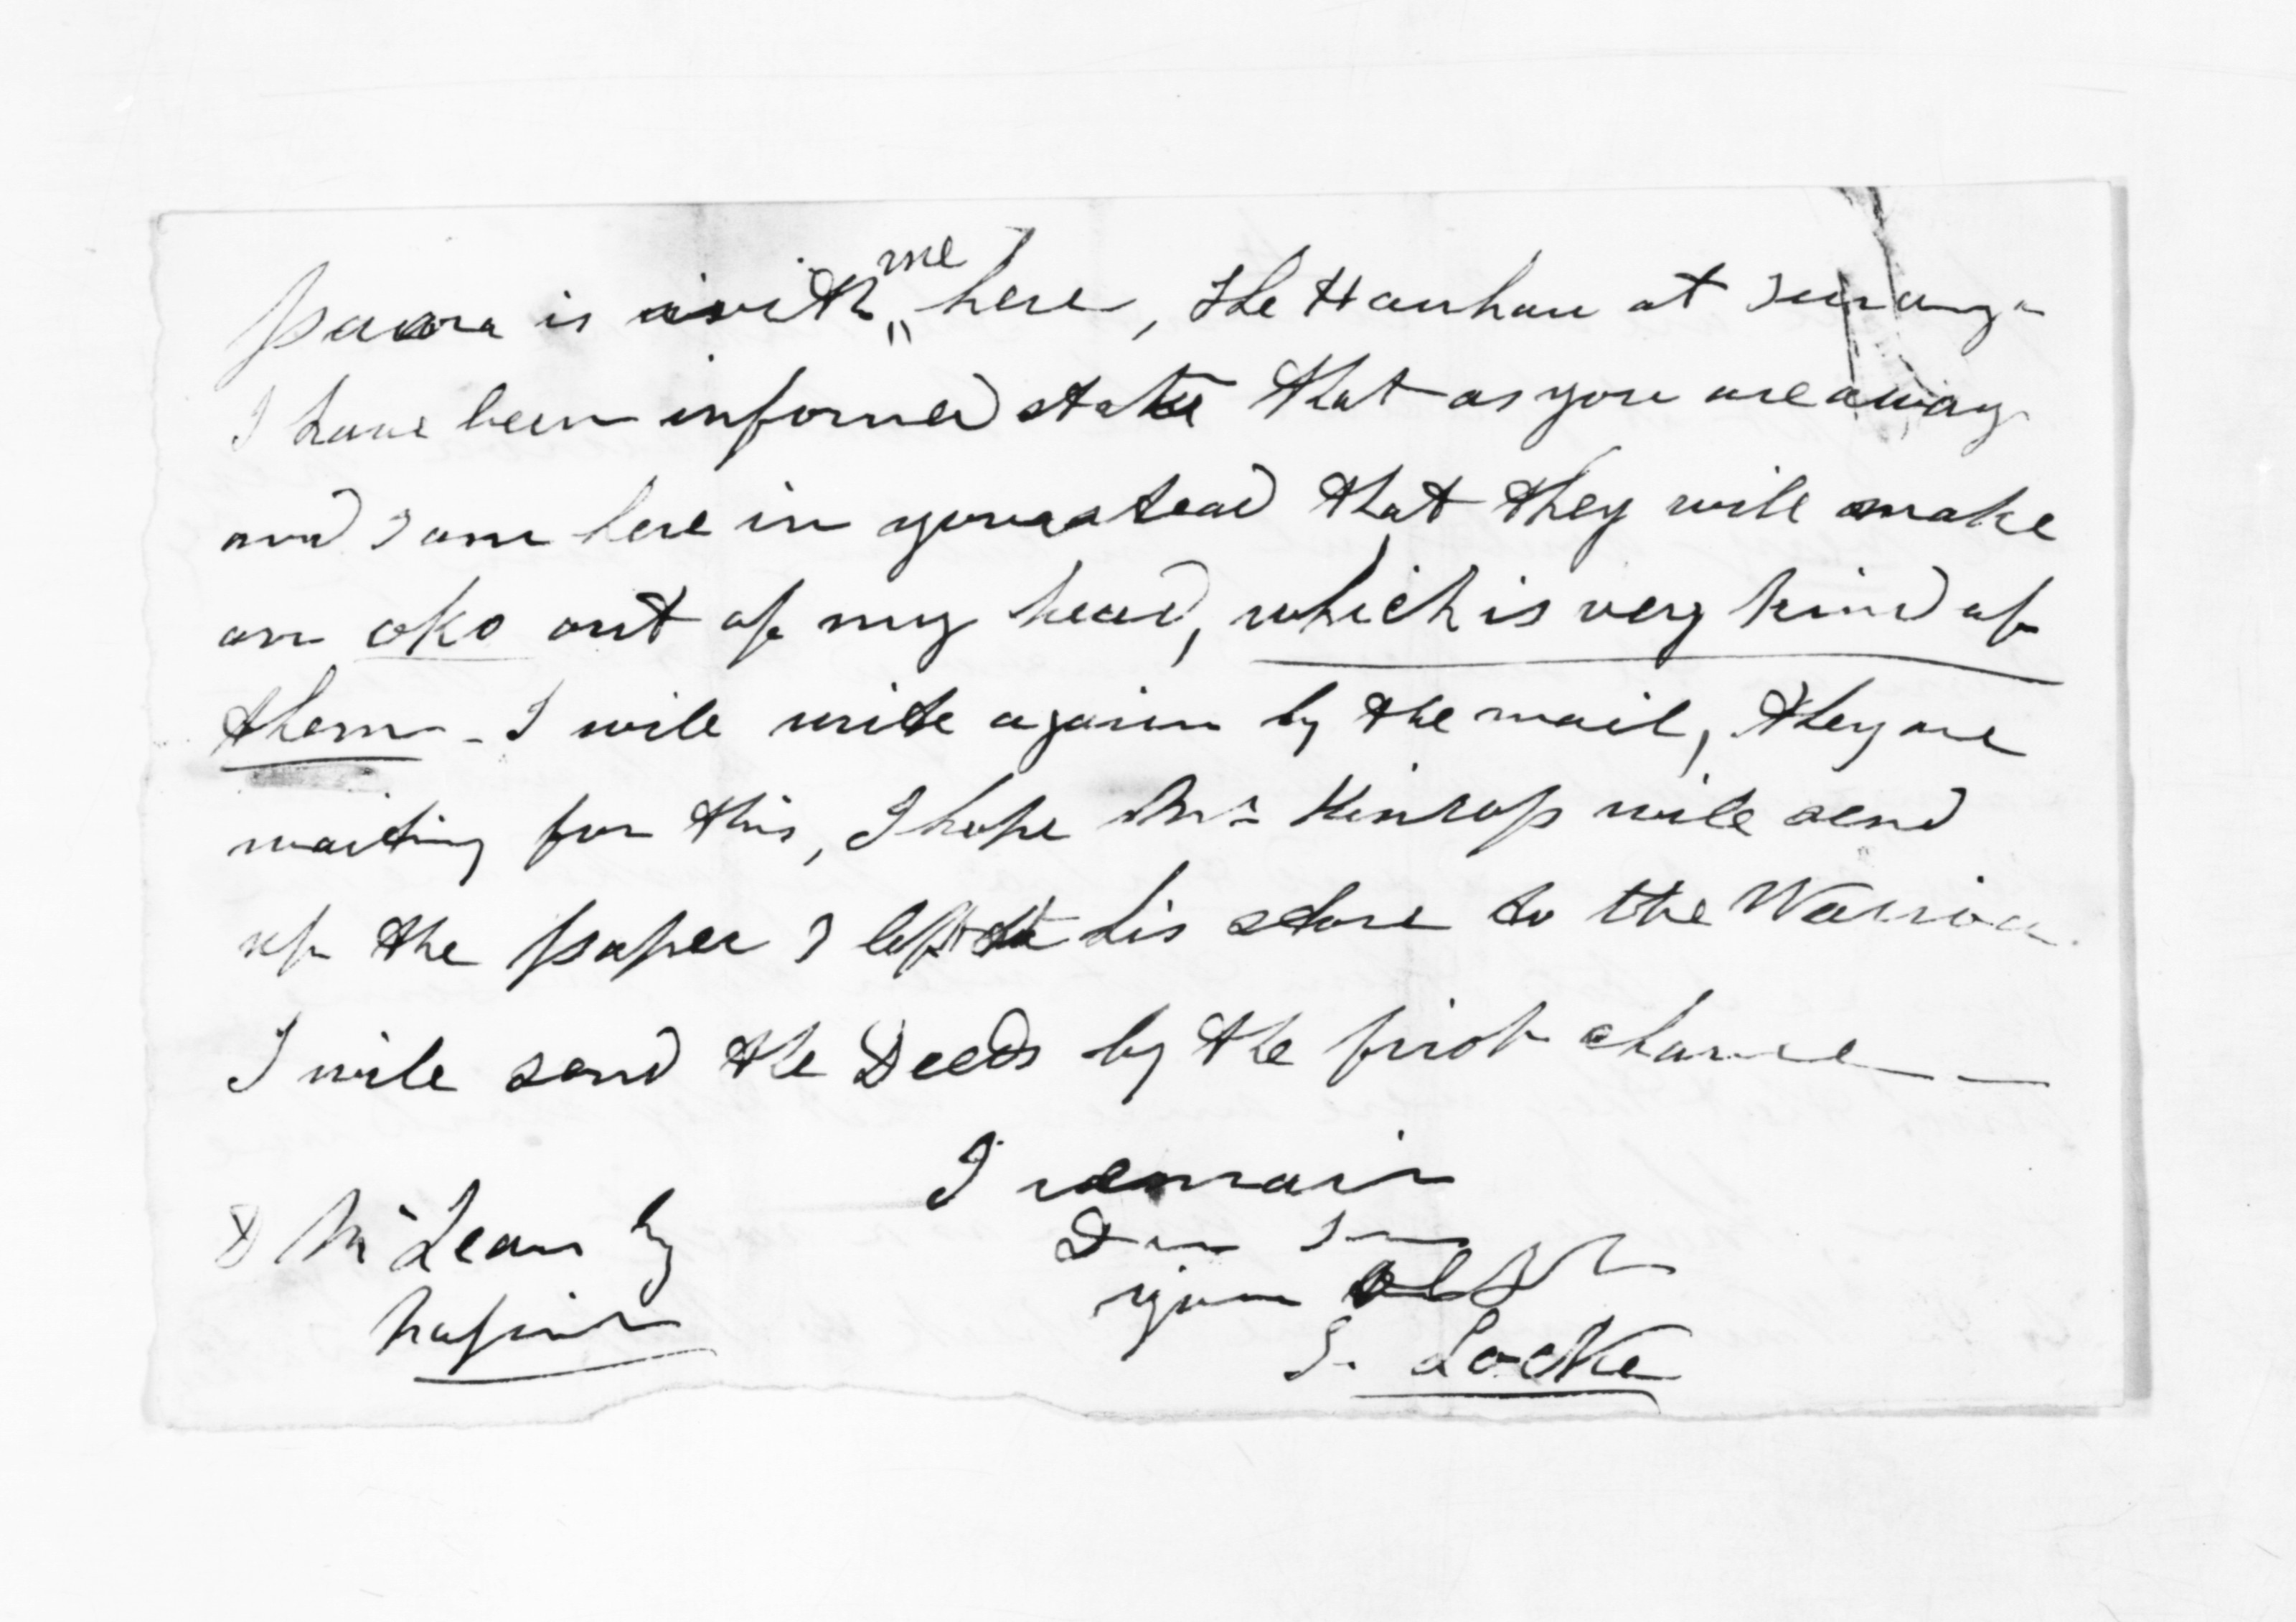 paora is with me here, the Hauhau at Turanga
I have been informed state that as you are away
and I am here in your stead that they will make
an oko out of my head, which is very kind of
them - I will write again by the mail, they are
waiting for this, I hope Mr Kinross will send
up the paper I left at his store to the Wairoa.
I will send the Deeds by the first chance —
I remain
Dear Sir
your obdt
S. Locke
D McLean Esq
Napier